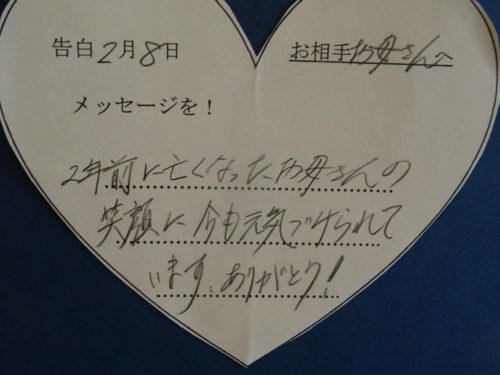 告白2月8日
お相手お母さんへ
メッセージを！
2年前に亡くなったお母さんの
笑顔に今も元気づけられて
います。ありがとう！